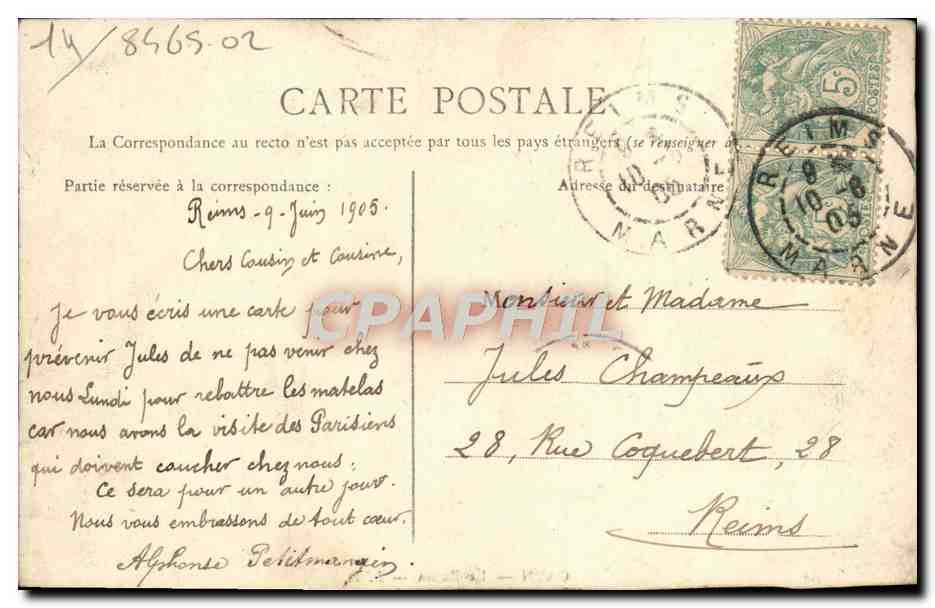 14/8465-02
CARTE POSTALE
La Correspondance au recto n'est pas acceptée par tous les pays étrangers (se renseigner à
Partie réservée à la correspondance :
Adresse du destinataire
Reims - 9 - Juin 1905.
Chers Cousin et Cousine,
Je vous écris une carte pour
prévenir Jules de ne pas venir chez
nous Lundi pour rebattre les matelas
car nous avons la visite des Parisiens
qui doivent coucher chez nous ;
Ce sera pour un autre jour.
Nous vous embrassons de tout cœur.
Alphonse Petitmangin
Monsieur et Madame
Jules Champeaux
28, Rue Coquebert, 28
Reims
REIMS
10
05
MARNE
REIMS
10 - 6
05
MARNE
5c
POSTES
CPAPHIL